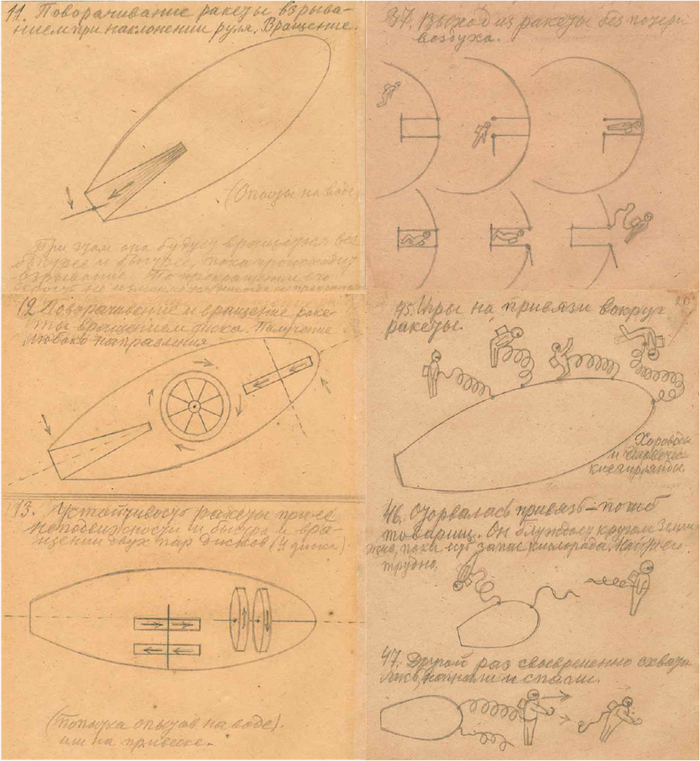 11. Поворачивание ракеты взрыва-
нием при наклонении руля. Вращение.
(Опыты на воде)
При этом она будет вращаться все
быстрее и быстрее, пока происходит
взрывание. По прекращении его
12. Поворачивание и вращение раке-
ты вращением диска. Получение
любого направления
13. Устойчивость ракеты при ее
неподвижности и быстром вра-
щении двух пар дисков (4 диска).
(Попытка опытов на воде)
или на привеске.
37. Выход из ракеты без потери
воздуха.
45. Игры на привязи вокруг
ракеты.
Хороводы
и человечес-
кие гирлянды.
46. Оторвалась привязь – погиб
товарищ. Он блуждает кругом Земли
пока есть запас кислорода. Найти его
трудно.
47. Другой раз своевременно схвати-
лись, догнали и спасли.